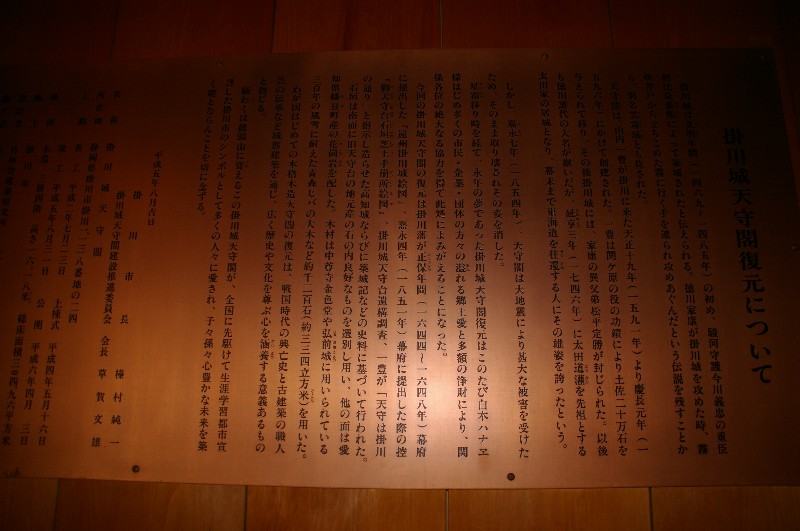 掛川城天守閣復元について
掛川城は文明年間（一四六九～一四八五年）の初め、駿河守護今川義忠の重臣
朝比奈泰熙によって築城されたと伝えられる。徳川家康が掛川城を攻めた時、霧
が立ちこめた霧に行く手を遮られ攻めあぐんだという伝説を残すことか
ら、別名雲霧城とも称された。
天守閣は、山内一豊が掛川に来た天正十九年（一五九一年）より慶長元年（一
五九六年）にかけて創建された。一豊は関ケ原の役の功績により土佐二十万石を
与えられて移り、その後掛川城には、家康の異父弟松平定勝が封じられた。以後
も徳川譜代の大名が継いだが、延享三年（一七四六年）に太田道灌を先祖とする
太田家の居城となり、幕末まで東海道を往還する人にその雄姿を誇ったという。
しかし、嘉永七年（一八五四年）、天守閣は大地震により甚大な被害を受けた
ため、そのまま取り壊されその姿を消した。
星霜移り時を経て、永年の夢であった掛川城天守閣復元はこのたび白木ハナヱ
様はじめ多くの市民・企業・団体の方々の溢れる郷土愛と多額の浄財により、関
係各位の絶大なる協力を得て此処によみがえることになった。
今回の掛川城天守閣の復元は掛川藩が正保年間（一六四四～一六四八年）幕府
に提出した「遠州掛川城絵図」、嘉永四年（一八五一年）幕府に提出した際の控
「御天守台石垣芝土手崩所絵図」、掛川城天守台遺構調査、一豊が「天守は掛川
の通り」と指示し造らせた高知城ならびに築城記などの史料に基づいて行われた。
石垣は南面に旧天守台の地元産の石の内良好なものを選別し用い、他の面は愛
知県幡豆町産の花崗岩を配した。木材は中尊寺金色堂や弘前城に用いられている
三百年の風雪に耐えた青森ヒバの大木など約千二百石（約三三四立方米）を用いた。
わが国はじめての本格木造天守閣の復元は、戦国時代の興亡史と古建築の職人
芸の伝承など城郭建築を通し、広く歴史や文化を尊ぶ心を涵養する意義あるもの
と信じる。
願わくは龍頭山に聳えるこの掛川城天守閣が、全国に先駆けて生涯学習都市宣
言した掛川市のシンボルとして多くの人々に愛され、子々孫々心豊かな未来を築
く礎とならんことを切に念ずる。
平成五年八月吉日
掛川市長 榛村純一
掛川城天守閣建設推進委員会 会長 草賀文雄
名称 掛川城天守閣
静岡県掛川市掛川一一三八番地の二四
工期 着工 平成 年七月二三日 上棟式 平成四年五月十六日
竣工 平成五年八月三一日 公開 平成六年四月三日
木造 三層四階 高さ一六・一八米 総床面積三〇四・九六平方米